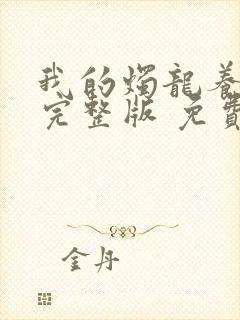 我的燭龍養
完整版 免費
金丹